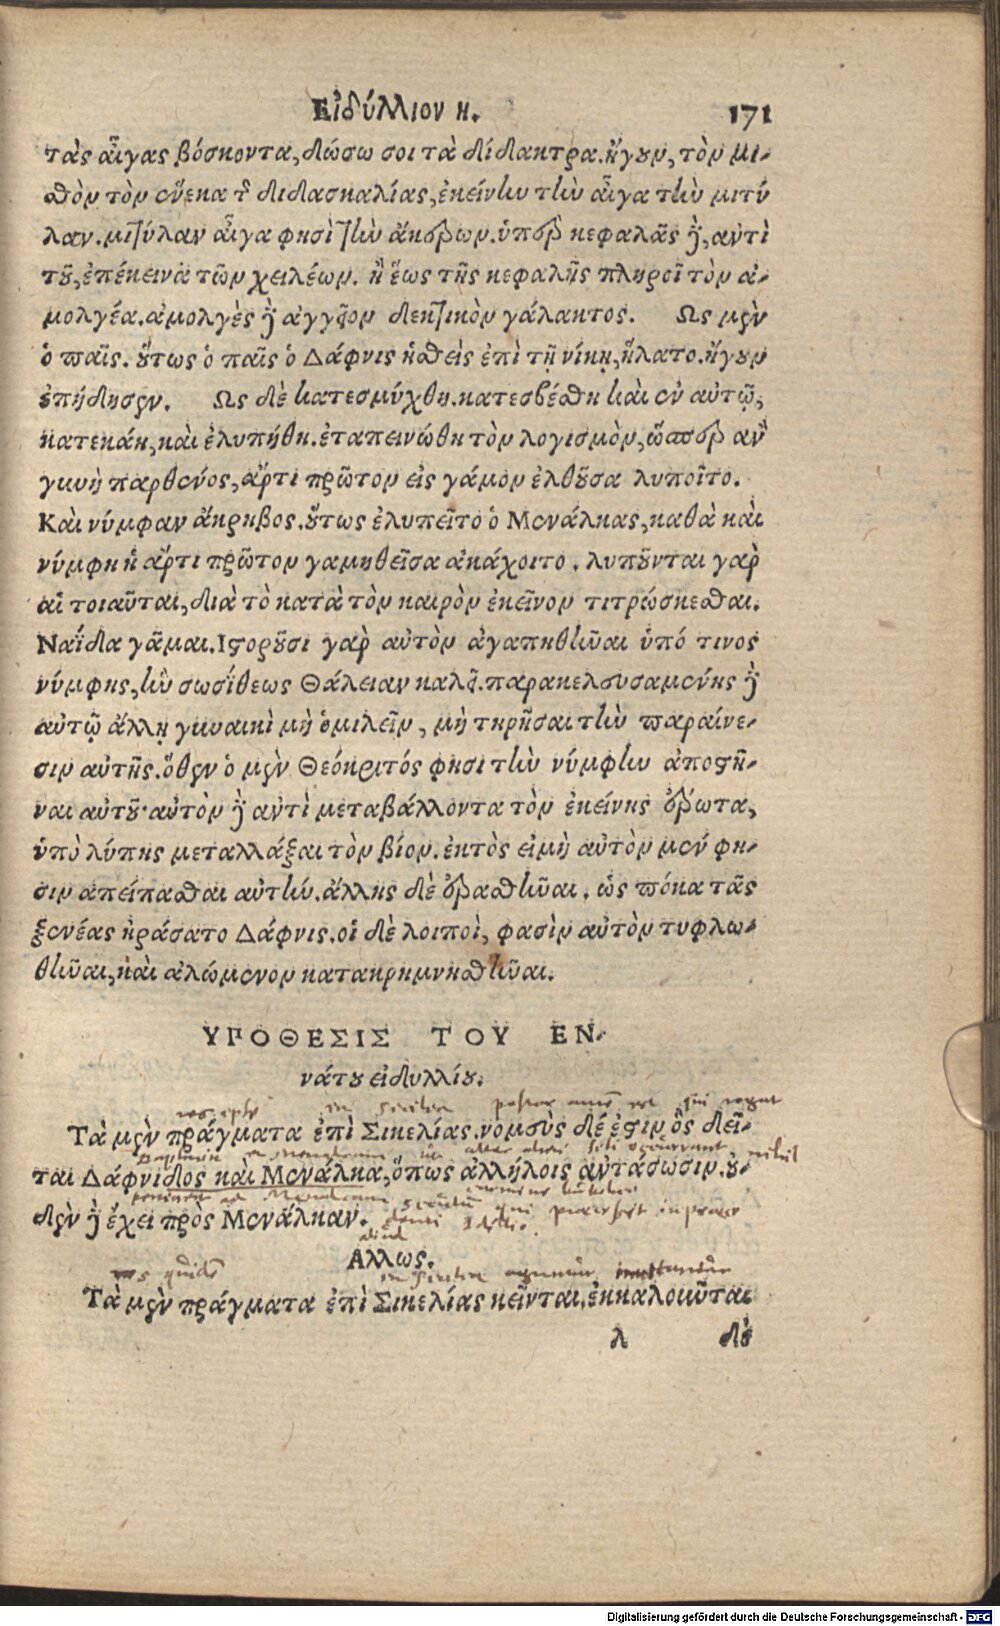 Εἰδύλλιον η. 171
τὰς αἶγας βόσκοντα, δώσω σοι τὰ δίδακτρα. ἤγουν, τὸν μι-
σθὸν τὸν ἕνεκα τῆς διδασκαλίας, ἐκείνην τὴν αἶγα τὴν μιτύ
λαν. μιτύλαν αἶγα φησὶ τὴν ἄκερων. ὑπὲρ κεφαλᾶς δὲ, ἀντὶ
τοῦ, ἐπέκεινα τῶν χειλέων. ἢ ἕως τῆς κεφαλῆς πληροῖ τὸν ἀ-
μολγέα. ἀμολγὲς δὲ ἀγγεῖον δεκτικὸν γάλακτος. Ως μὲν
ὁ παῖς. οὕτως ὁ παῖς ὁ Δάφνις ἡσθεὶς ἐπὶ τῇ νίκῃ, ἥλατο. ἤγουν
ἐπήδησεν. Ως δὲ κατεσμύχθη. κατεσβέσθη καὶ ἐν αὐτῷ,
κατεκάη, καὶ ἐλυπήθη. ἐταπεινώθη τὸν λογισμὸν, ὥσπερ ἂν
γυνὴ παρθένος, ἄρτι πρῶτον εἰς γάμον ἐλθοῦσα λυποῖτο.
Καὶ νύμφαν ἄκρηβος. οὕτως ἐλυπεῖτο ὁ Μενάλκας, καθὰ καὶ
νύμφη ἡ ἄρτι πρῶτον γαμηθεῖσα ἀκάχοιτο. λυποῦνται γὰρ
αἱ τοιαῦται, διὰ τὸ κατὰ τὸν καιρὸν ἐκεῖνον τιτρώσκεσθαι.
Ναΐδα γᾶμαι. Ιστοροῦσι γὰρ αὐτὸν ἀγαπηθῆναι ὑπό τινος
νύμφης, ἣν σωσίθεως Θάλειαν καλεῖ. παρακελευσαμένης δὲ
αὐτῷ ἄλλῃ γυναικὶ μὴ ὁμιλεῖν, μὴ τηρῆσαι τὴν παραίνε-
σιν αὐτῆς. ὅθεν ὁ μὲν Θεόκριτός φησι τὴν νύμφην ἀποστῆ-
ναι αὐτοῦ· αὐτὸν δὲ ἀντὶ μεταβάλλοντα τὸν ἐκείνης ἔρωτα,
ὑπὸ λύπης μεταλλάξαι τὸν βίον. ἐκτὸς εἰ μὴ αὐτὸν μέν φη-
σιν ἀπείπασθαι αὐτήν. ἄλλης δὲ ἐρασθῆναι. ὡς πόκα τᾶς
ξενέας ἠράσατο Δάφνις. οἱ δὲ λοιποὶ, φασὶν αὐτὸν τυφλω-
θῆναι, καὶ ἀλώμενον κατακρημνησθῆναι.
ΥΠΟΘΕΣΙΣ ΤΟΥ ΕΝ-
νάτου εἰδυλλίου.
in Sicilia pastor
Τὰ μὲν πράγματα ἐπὶ Σικελίας. νομεὺς δέ ἐστιν ὃς δεῖ-
ται Δάφνιδος καὶ Μενάλκα, ὅπως ἀλλήλοις ἀντάσωσιν. οὐ-
δὲν δὲ ἔχει πρὸς Μενάλκαν.
Αλλως.
in Sicilia
Τὰ μὲν πράγματα ἐπὶ Σικελίας κεῖνται. ἐκκαλοῦνται
λ δὲ
Digitalisierung gefördert durch die Deutsche Forschungsgemeinschaft - DFG